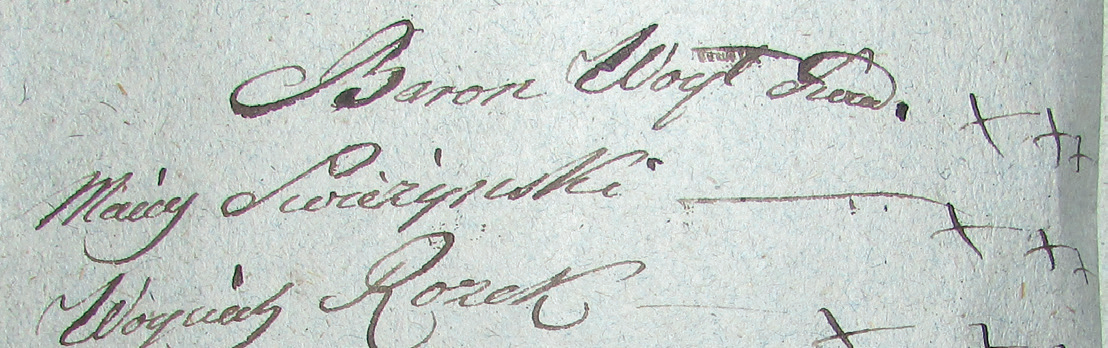 Baron Woyt
Maciey Swierzynski ++
Woyciech Rozek ++